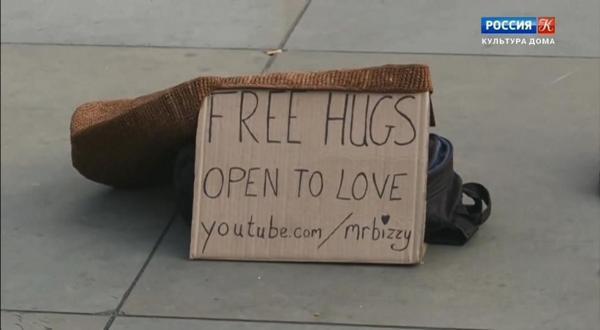 РОССИЯ К
КУЛЬТУРА ДОМА
FREE HUGS
OPEN TO LOVE
youtube.com/mrbizzy